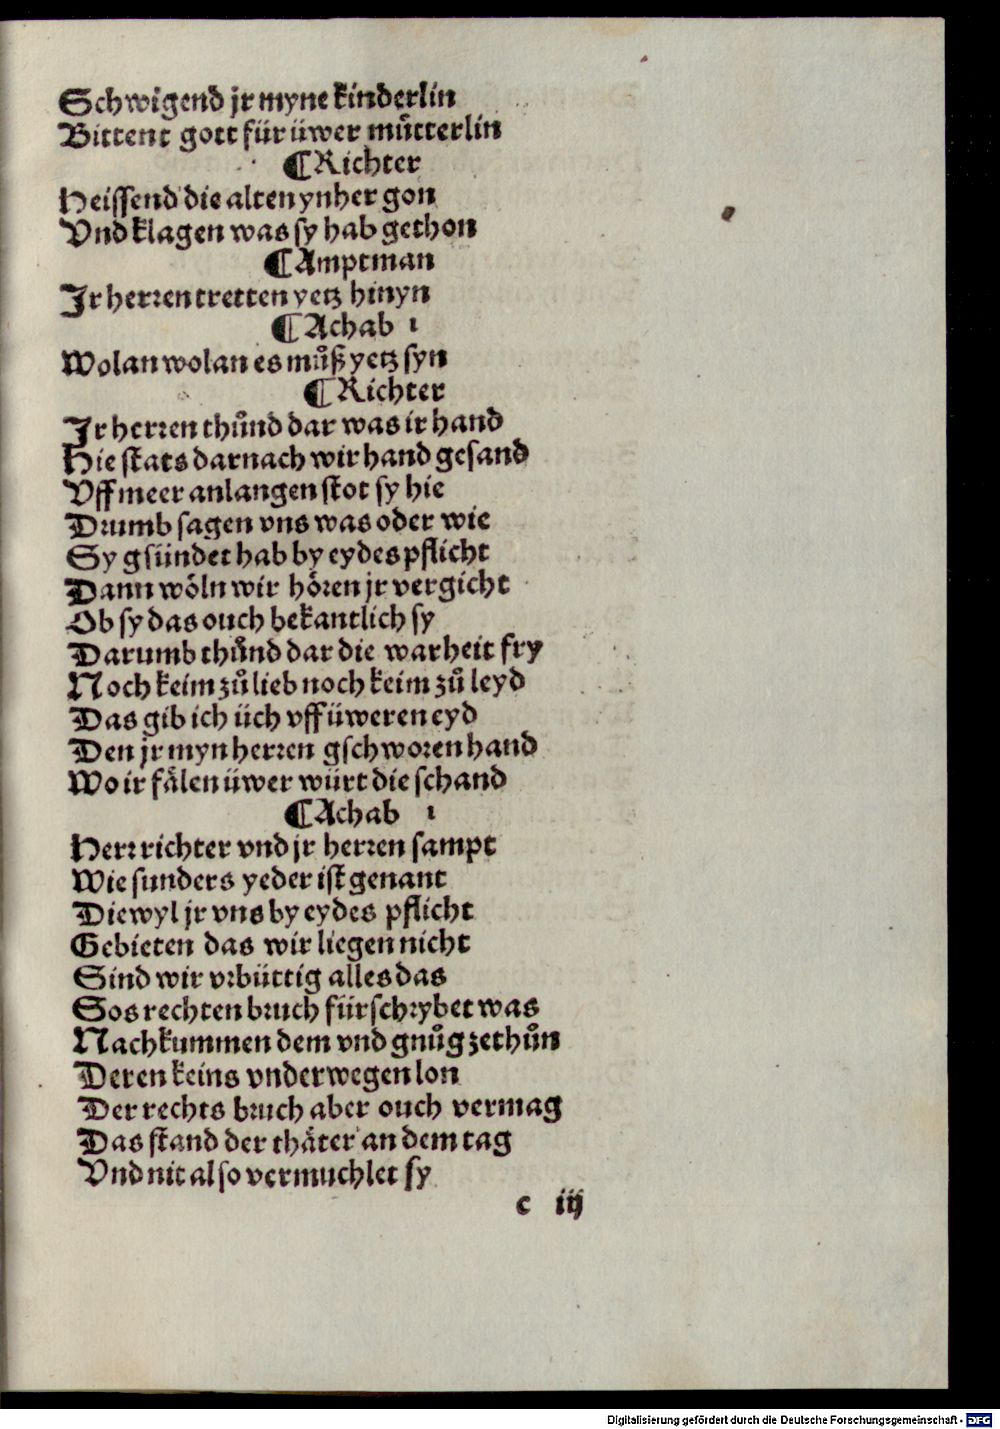 Schwigend jr myne kinderlin
Bittent gott für üwer můtterlin
¶ Richter
Heissend die alten ynher gon
Vnd klagen was sy hab gethon
¶ Amptman
Jr herren tretten yetz hinyn
¶ Achab 1
Wolan wolan es můß yetz syn
¶ Richter
Jr herren thůnd dar was ir hand
Hie stats darnach wir hand gesand
Vff meer anlangen stot sy hie
Drumb sagen vns was oder wie
Sy gsündet hab by eydes pflicht
Dann wöln wir hören jr vergicht
Ob sy das ouch bekantlich sy
Darumb thůnd dar die warheit fry
Noch keim zů lieb noch keim zů leyd
Das gib ich üch vff üweren eyd
Den jr myn herren gschworen hand
Wo ir fälen üwer würt die schand
¶ Achab 1
Herr richter vnd jr herren sampt
Wie sunders yeder ist genant
Diewyl jr vns by eydes pflicht
Gebieten das wir liegen nicht
Sind wir vrbüttig alles das
Sos rechten bruch fürschrybet was
Nachkummen dem vnd gnůg zethůn
Deren keins vnderwegen lon
Der rechts bruch aber ouch vermag
Das stand der thäter an dem tag
Vnd nit also vermuchlet sy
c iij
Digitalisierung gefördert durch die Deutsche Forschungsgemeinschaft - DFG